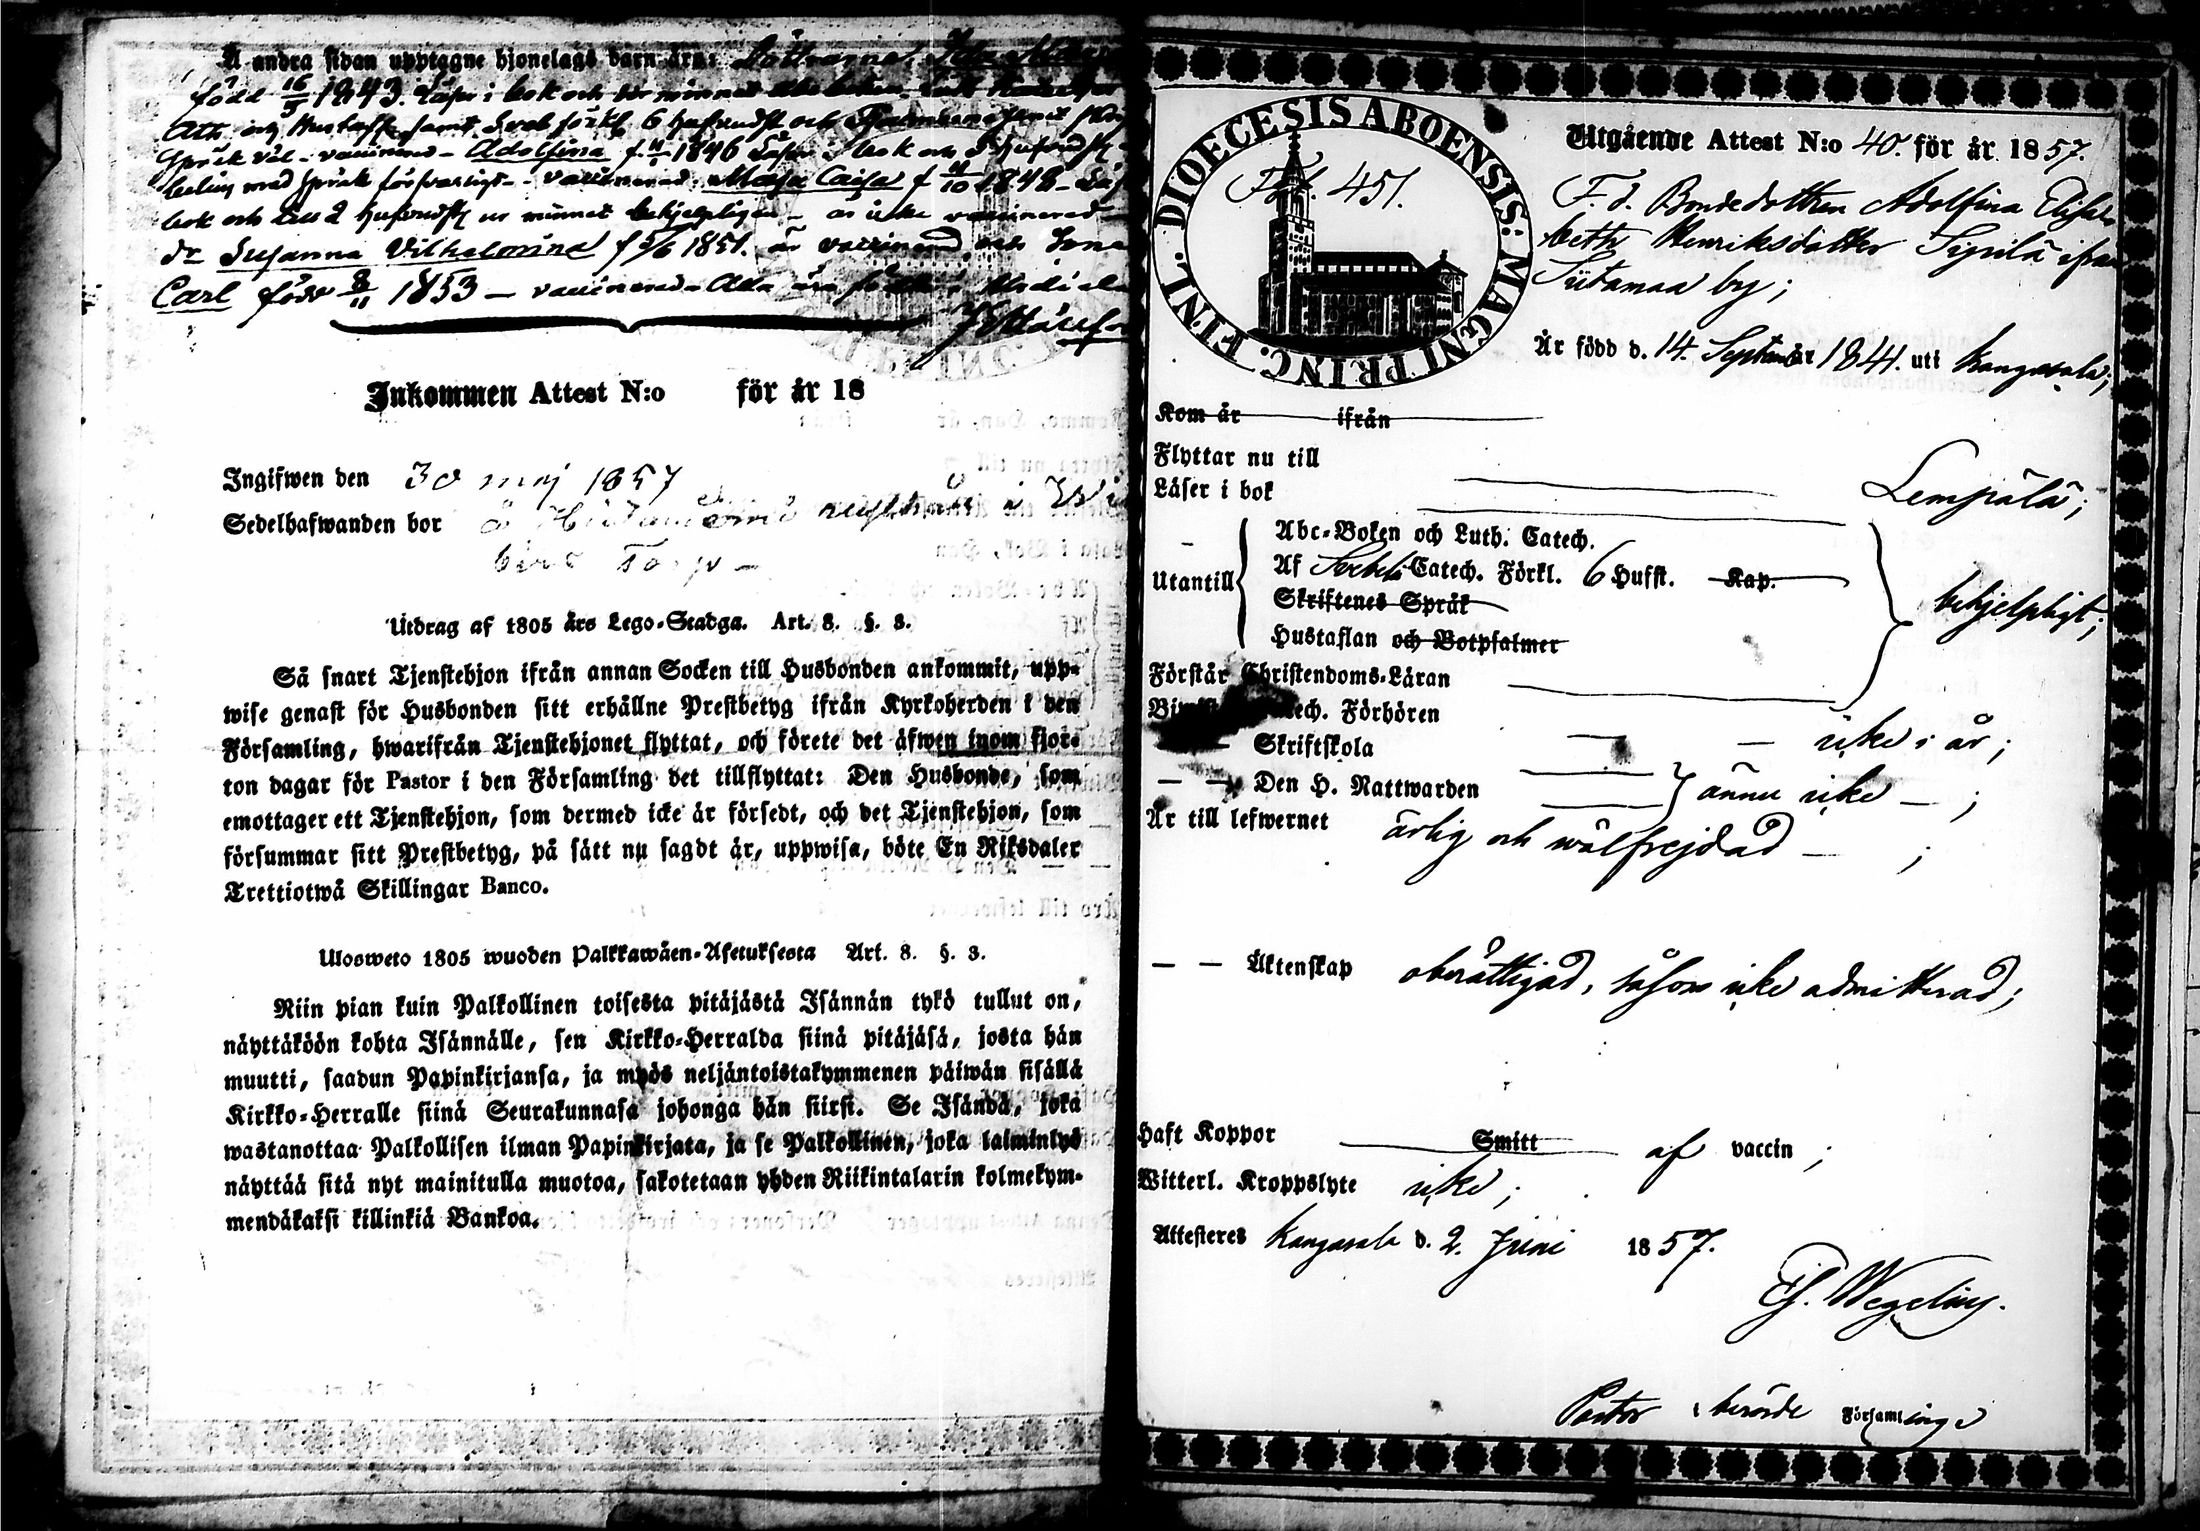 Å andra sidan upptagne hjonelags barn äro: Döttrarna
född 16/5 1843. Läser i bok och
6 Hufvudst och
Språk väl - vaccinerad - Adolfina f 1846 Läser i bok och
med språk försvarligt - vaccinerad. Maja Caisa f 11/10 1848 -
bok och till 2 Hufvudst ur minnet behjelpligen - är icke vaccinerad -
dr Susanna Vilhelmina f 5/6 1851. är vaccinerad och
Carl född 8/11 1853 - vaccinerad - Alla äro
Inkommen Attest N:o för år 18
Ingifwen den 30 maj 1857
Sedelhafwanden bor å
Torp -
Utdrag af 1805 års Lego-Stadga. Art. 8. §. 3.
Så snart Tjenstehjon ifrån annan Socken till Husbonden ankommit, upp-
wise genast för Husbonden sitt erhållne Prestbetyg ifrån Kyrkoherden i den
Församling, hwarifrån Tjenstehjonet flyttat, och förete det äfwen inom fjor-
ton dagar för Pastor i den Församling det tillflyttat: Den Husbonde, som
emottager ett Tjenstehjon, som dermed icke är försedt, och det Tjenstehjon, som
försummar sitt Prestbetyg, på sätt nu sagdt är, uppwisa, böte En Riksdaler
Trettiotwå Skillingar Banco.
Ulosweto 1805 wuoden Palkkawäen-Asetuksesta Art. 8. §. 3.
Niin pian kuin Palkollinen toisesta pitäjästä Isännän tykö tullut on,
näyttäköön kohta Isännälle, sen Kirkko-Herralda siinä pitäjäsä, josta hän
muutti, saadun Papinkirjansa, ja myös neljäntoistakymmenen päiwän sisällä
Kirkko-Herralle siinä Seurakunnasa johonga hän siirsi. Se Isändä, joka
wastanottaa Palkollisen ilman Papinkirjata, ja se Palkollinen, joka laiminlyö
näyttää sitä nyt mainitulla muotoa, sakotetaan yhden Riikintalarin kolmekym-
mendäkaksi killinkiä Bankoa.
DIOECESIS ABOENSIS: MAGNI PRINC. FINL.
Fol. 451.
Utgående Attest N:o 40. för år 1857.
F. d. Bondedottren Adolfina Elisa-
beth Henriksdotter Sipilä ifrån
Siitamaa by;
Är född d. 14. September 1841. uti Kangasala;
Kom år ifrån
Flyttar nu till Lempälä;
Läser i bok
Utantill
Abc-Boken och Luth. Catech.
Af Svebeli Catech. Förkl. 6 Hufst. Kap.
Skriftenes Språk
Hustaflan och Botpsalmer
behjelpligt;
Förstår Christendoms-Läran
Förhören
Skriftskola icke i år;
Den H. Nattwarden ännu icke - ;
Är till lefwernet ärlig och wälfrejdad - ;
Äktenskap oberättigad, såsom icke admitterad;
Haft Koppor Smitt af vaccin ;
Witterl. Kroppslyte icke;
Attesteres Kangasala d. 2. Juni 1857.
Wegelius.
Pastor i berörde Församlinge